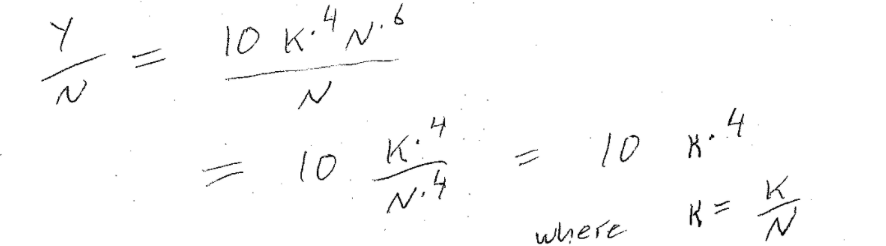 Y/N = 10 K^.4 N^.6 / N
= 10 K^.4 / N^.4 = 10 k^.4
where k = K/N